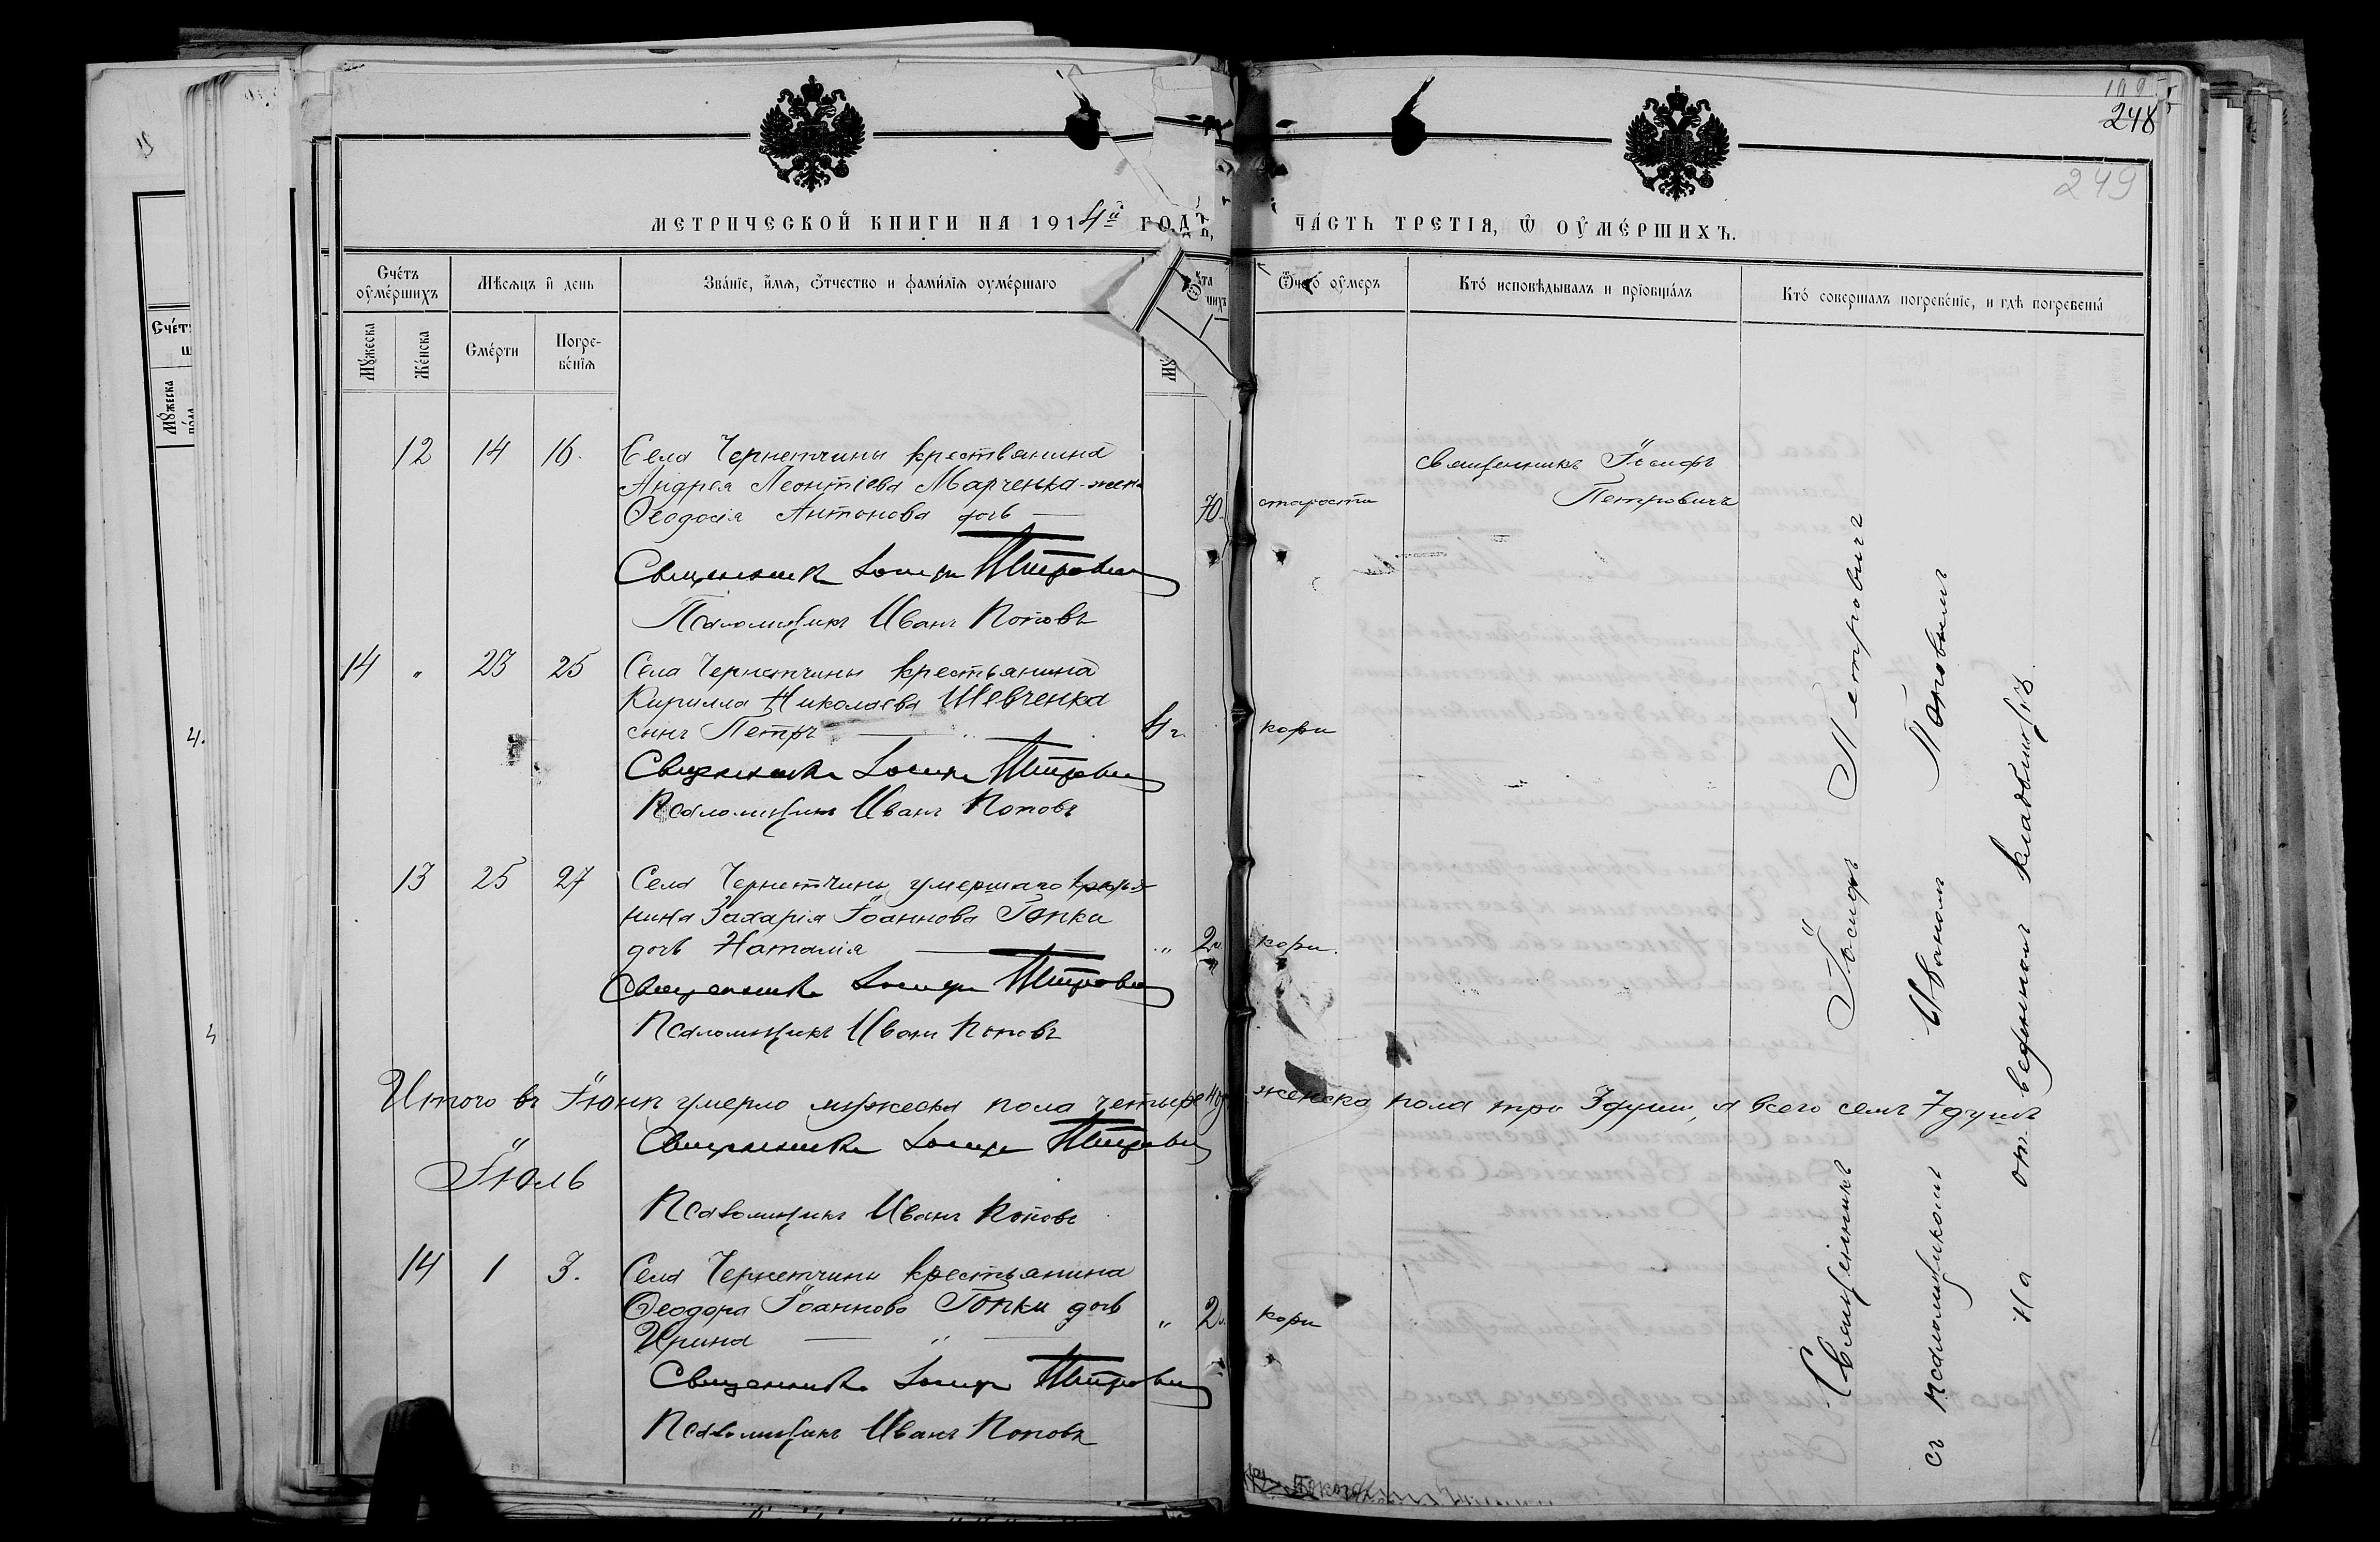 МЕТРИЧЕСКОЙ КНИГИ НА 1914й ГОДЪ,
Счетъ оумершихъ
Мѣсяцъ и день
Званіе, имя, отчество и фамилія оумершаго
Мужеска
Женска
Смерти
Погребенія
12 14 16. Села Чернетчины крестьянина
Андрея Леонтіева Марченка жена
Ѳеодосія Антонова дочь — 70.
Священникъ Іосифъ Петровичъ
Псаломщикъ Иванъ Поповъ
14 " 23 25 Села Чернетчины крестьянина
Кирилла Николаева Шевченка
сынъ Петръ — " — 4 г.
Священникъ Іосифъ Петровичъ
Псаломщикъ Иванъ Поповъ
13 25 27 Села Чернетчины умершаго крестья-
нина Захарія Іоаннова Гопки
дочь Наталія — " 2
Священникъ Іосифъ Петровичъ
Псаломщикъ Иванъ Поповъ
Итого въ Іюнѣ умерло мужеска пола четыре 4
Священникъ Іосифъ Петровичъ
Іюль
Псаломщикъ Иванъ Поповъ
14 1 3. Села Чернетчины крестьянина
Ѳеодора Іоаннова Гопки дочь
Ирина — " — " 2
Священникъ Іосифъ Петровичъ
Псаломщикъ Иванъ Поповъ
248
249
ЧАСТЬ ТРЕТІЯ, Ѡ ОУМЕРШИХЪ.
Ѿчего оумеръ
Кто исповѣдывалъ и пріобщалъ
Кто совершалъ погребеніе, и гдѣ погребены
старости
священникъ Іосифъ
Петровичъ
кори
кори.
женска пола три 3 души, а всего семь 7 душъ
кори
Священникъ Іосифъ Петровичъ
съ псаломщикомъ Иваномъ Поповымъ
на отведенномъ кладбищѣ